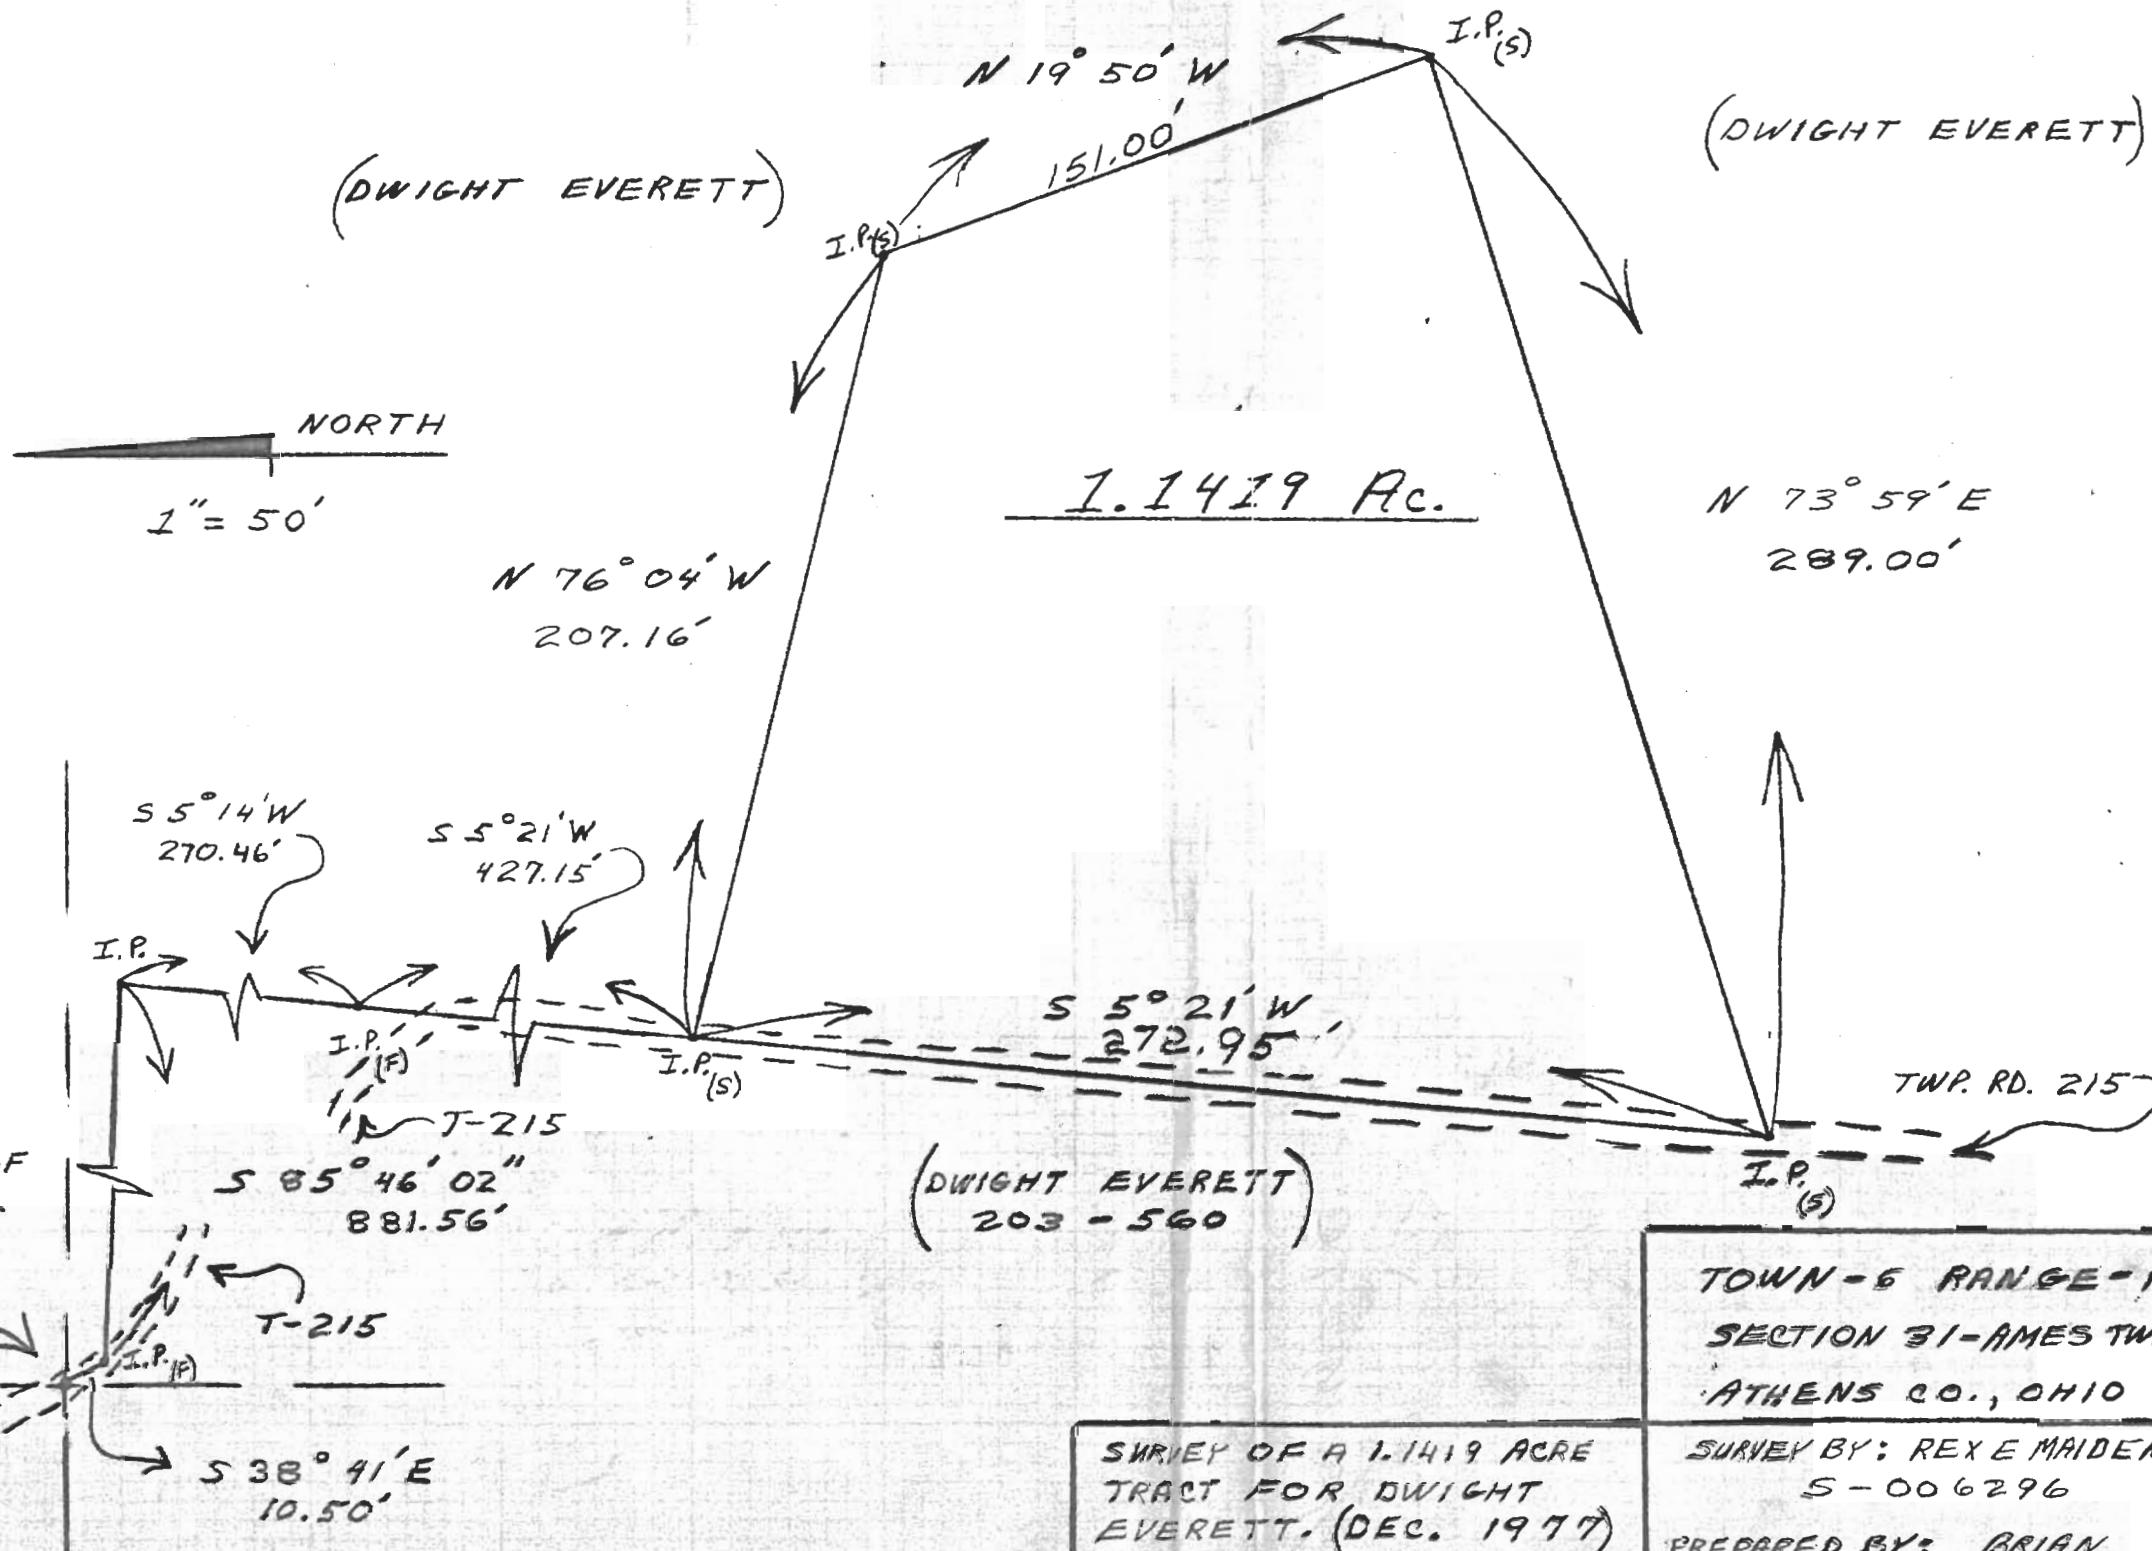 I.P.(S)
N 19° 50' W
151.00'
(DWIGHT EVERETT)
(DWIGHT EVERETT)
I.P.(S)
NORTH
1" = 50'
1.1419 Ac.
N 73° 59' E
289.00'
N 76° 04' W
207.16'
S 5° 14' W
270.46'
S 5° 21' W
427.15'
I.P.
I.P.(F)
I.P.(S)
S 5° 21' W
272.95'
TWP. RD. 215
T-215
I.P.(S)
F
S 85° 46' 02"
881.56'
(DWIGHT EVERETT)
203 - 560
T-215
I.P.(F)
S 38° 41' E
10.50'
TOWN - 6 RANGE -
SECTION 31 - AMES TW
ATHENS CO., OHIO
SURVEY OF A 1.1419 ACRE
TRACT FOR DWIGHT
EVERETT. (DEC. 1977)
SURVEY BY: REX E MAIDEN
S - 006296
PREPARED BY: BRIAN